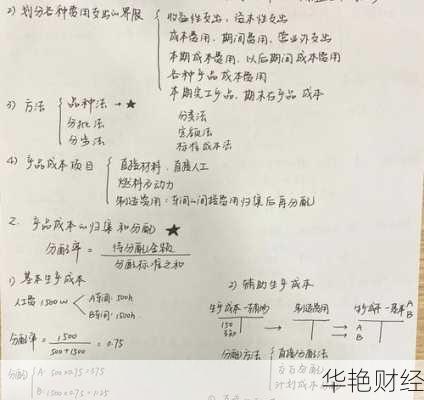 2) 划分各种费用支出的界限
收益性支出、资本性支出
成本费用、期间费用、营业外支出
本期成本费用、以后期间成本费用
各种产品成本费用
本期完工产品、期末在产品成本
3) 方法
品种法 → ★
分批法
分步法
分类法
定额法
标准成本法
4) 产品成本项目
直接材料、直接人工
燃料及动力
制造费用：车间的间接费用归集后再分配
2. 产品成本的归集和分配 ★
分配率 = 待分配金额 / 分配标准之和
1) 基本生产成本
人工费 1500w
A车间: 500h
B车间: 1500h
分配率 = 1500 / 500+1500 = 0.75
分配
A: 500×0.75=375
B: 1500×0.75=1125
2) 辅助生产成本
生产成本-辅助
制造费用
生产成本-基本
A
B
150
A
B
分配方法
直接分配法
交互分配法
计划成本
华艳财经